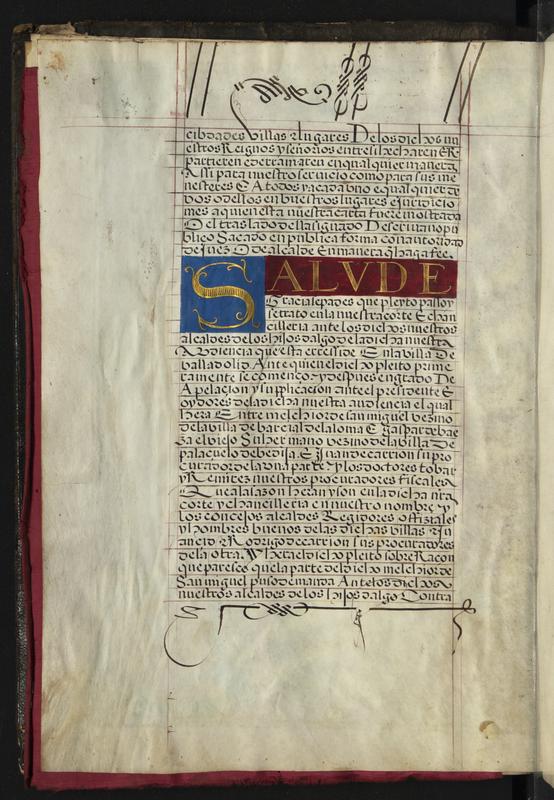 cibdades villas & lugares De los dichos nu
estros Reignos y señorios entre si hecharen E R
partieren e derramaren en qualquier manera
Assi para nuestro servicio como para sus me
nesteres E A todos y a cada vno e qualquier de
vos o dellos en buestros lugares e juridicio
nes a quien esta nuestra carta fuere mostrada
O el traslado della signado De scriuano pu
blico Sacado en publica forma con autoridad
de juez O de alcalde En manera q̃ haga fee.
SALVD E
Gracia sepades que pleyto passo y
se trato en la nuestra corte E chan
cilleria ante los dichos nuestros
alcaldes de los hijos dalgo de la dicha nuestra
Avdiencia que esta e rreside En la villa De
valladolid. Ante quien el dicho pleito prime
ramente se començo. y despues en grado De
Apelacion y suplicacion ante el presidente E
oydores de la dicha nuestra audiencia el qual
hera Entre melchior de san miguel vezino
de la villa de barcial de la loma E gaspar de bae
za el viejo Su hermano vezino de la villa De
palaçuelo de bedisa. E Juan de carrion su pro
curador de la vna parte. y los doctores tobar
y Remirez nuestros procuradores fiscales
Que a la sazon heran y son en la dicha nr̃a
corte y chancilleria en nuestro nombre. y
los concejos alcaldes Regidores offiziales
y hombres buenos de las dichas villas. & Ju
an e Rodrigo de carrion sus procuradores
de la otra. y hera el dicho pleito sobre Raçon
que paresce que la parte del dicho melchior de
San miguel puso demanda Ante los dichos
nuestros alcaldes de los hijos dalgo Contra